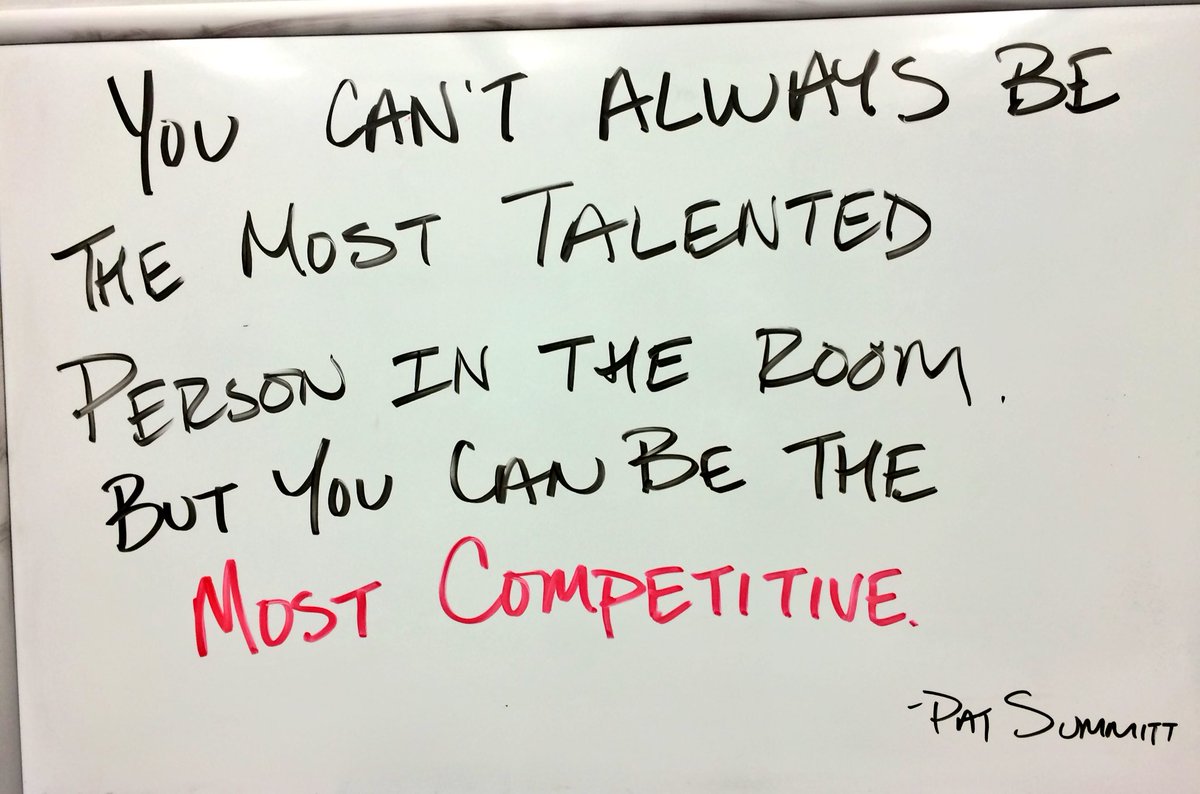 YOU CAN'T ALWAYS BE
THE MOST TALENTED
PERSON IN THE ROOM.
BUT YOU CAN BE THE
MOST COMPETITIVE.
-PAT SUMMITT